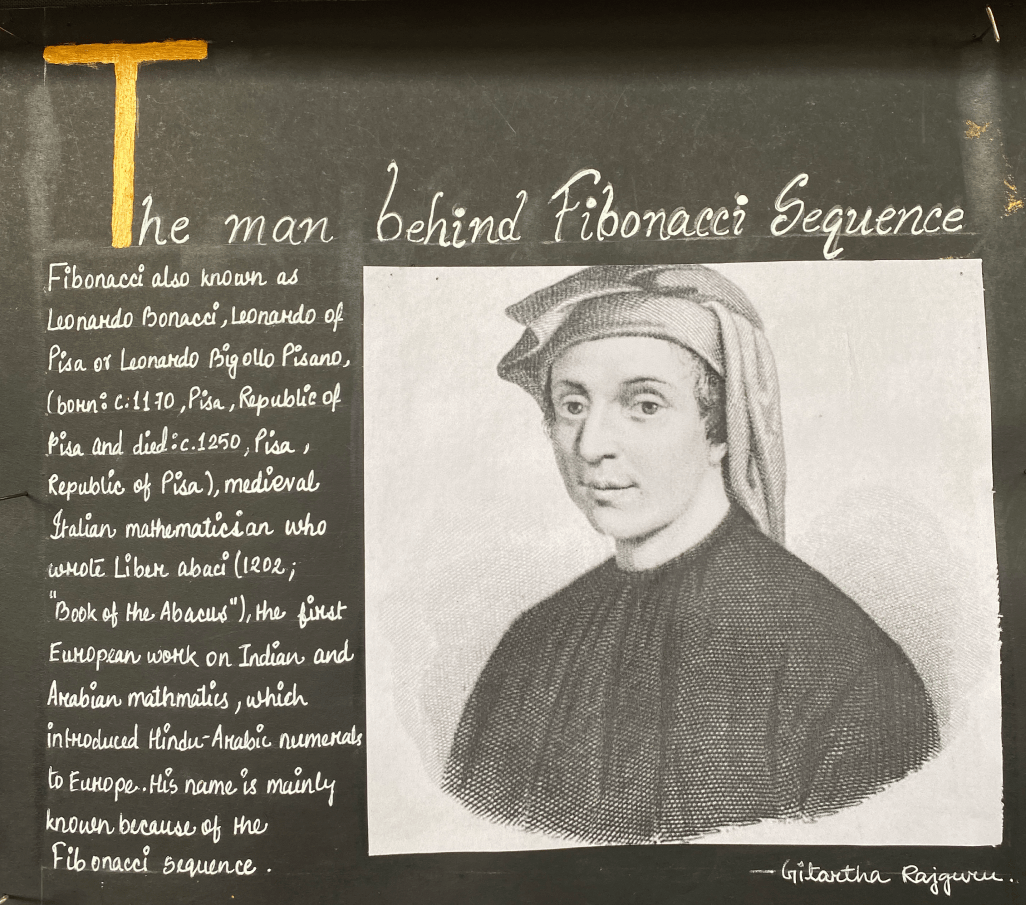 The man behind Fibonacci Sequence
Fibonacci also known as
Leonardo Bonacci, Leonardo of
Pisa or Leonardo Bigollo Pisano,
(born: c.1170, Pisa, Republic of
Pisa and died: c.1250, Pisa,
Republic of Pisa), medieval
Italian mathematician who
wrote Liber abaci (1202;
"Book of the Abacus"), the first
European work on Indian and
Arabian mathmatics, which
introduced Hindu-Arabic numerals
to Europe. His name is mainly
known because of the
Fibonacci sequence.
— Gitartha Rajguru.